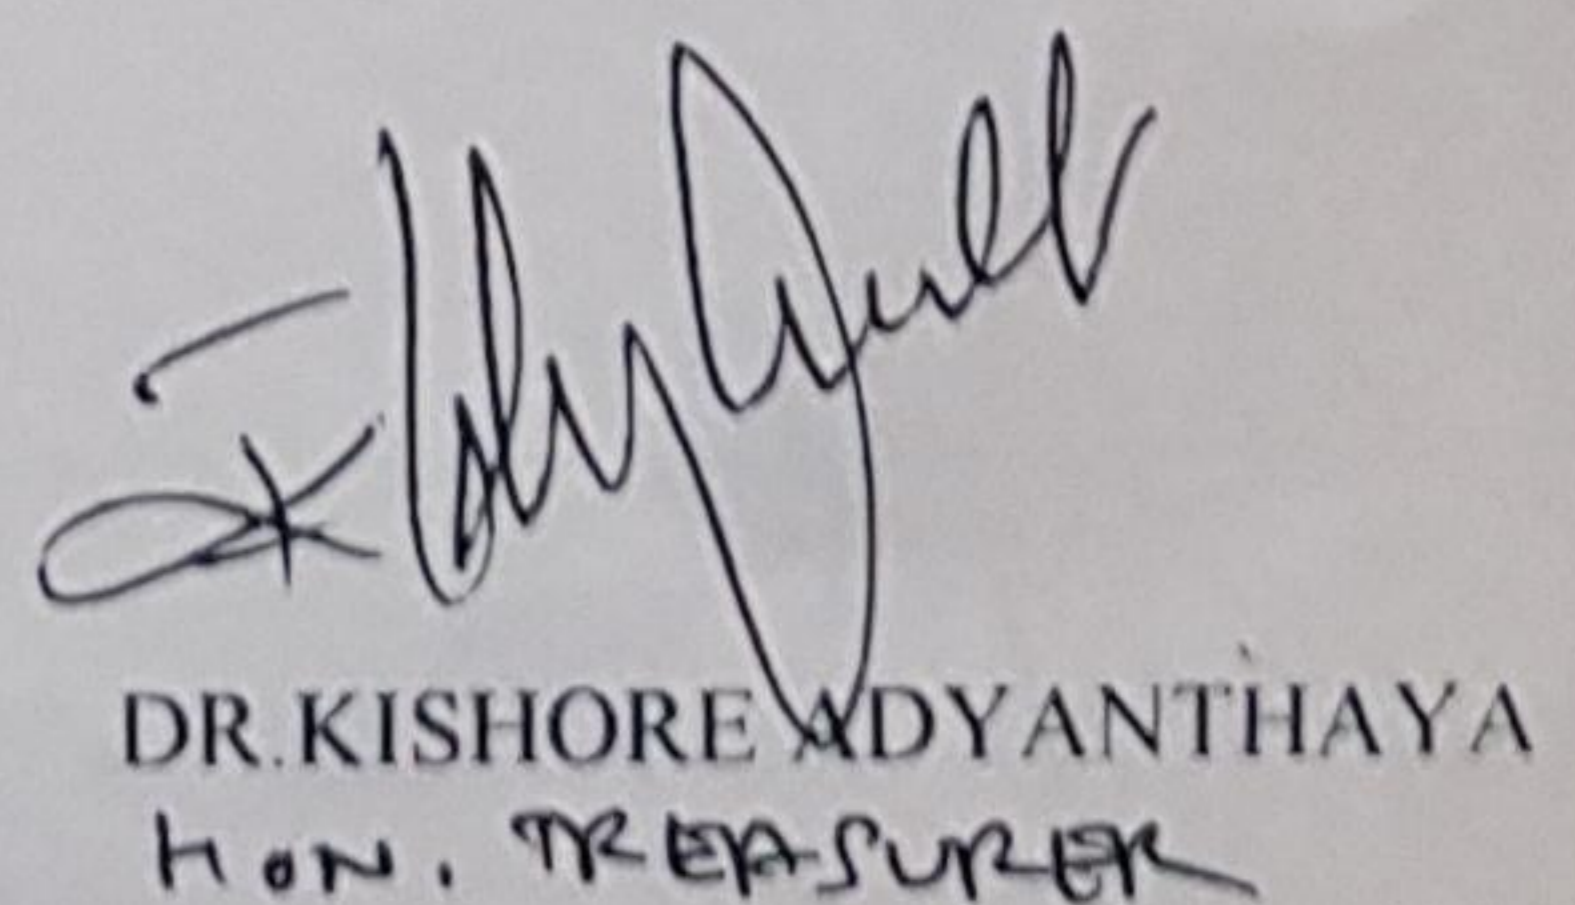 DR.KISHORE ADYANTHAYA
HON. TREASURER